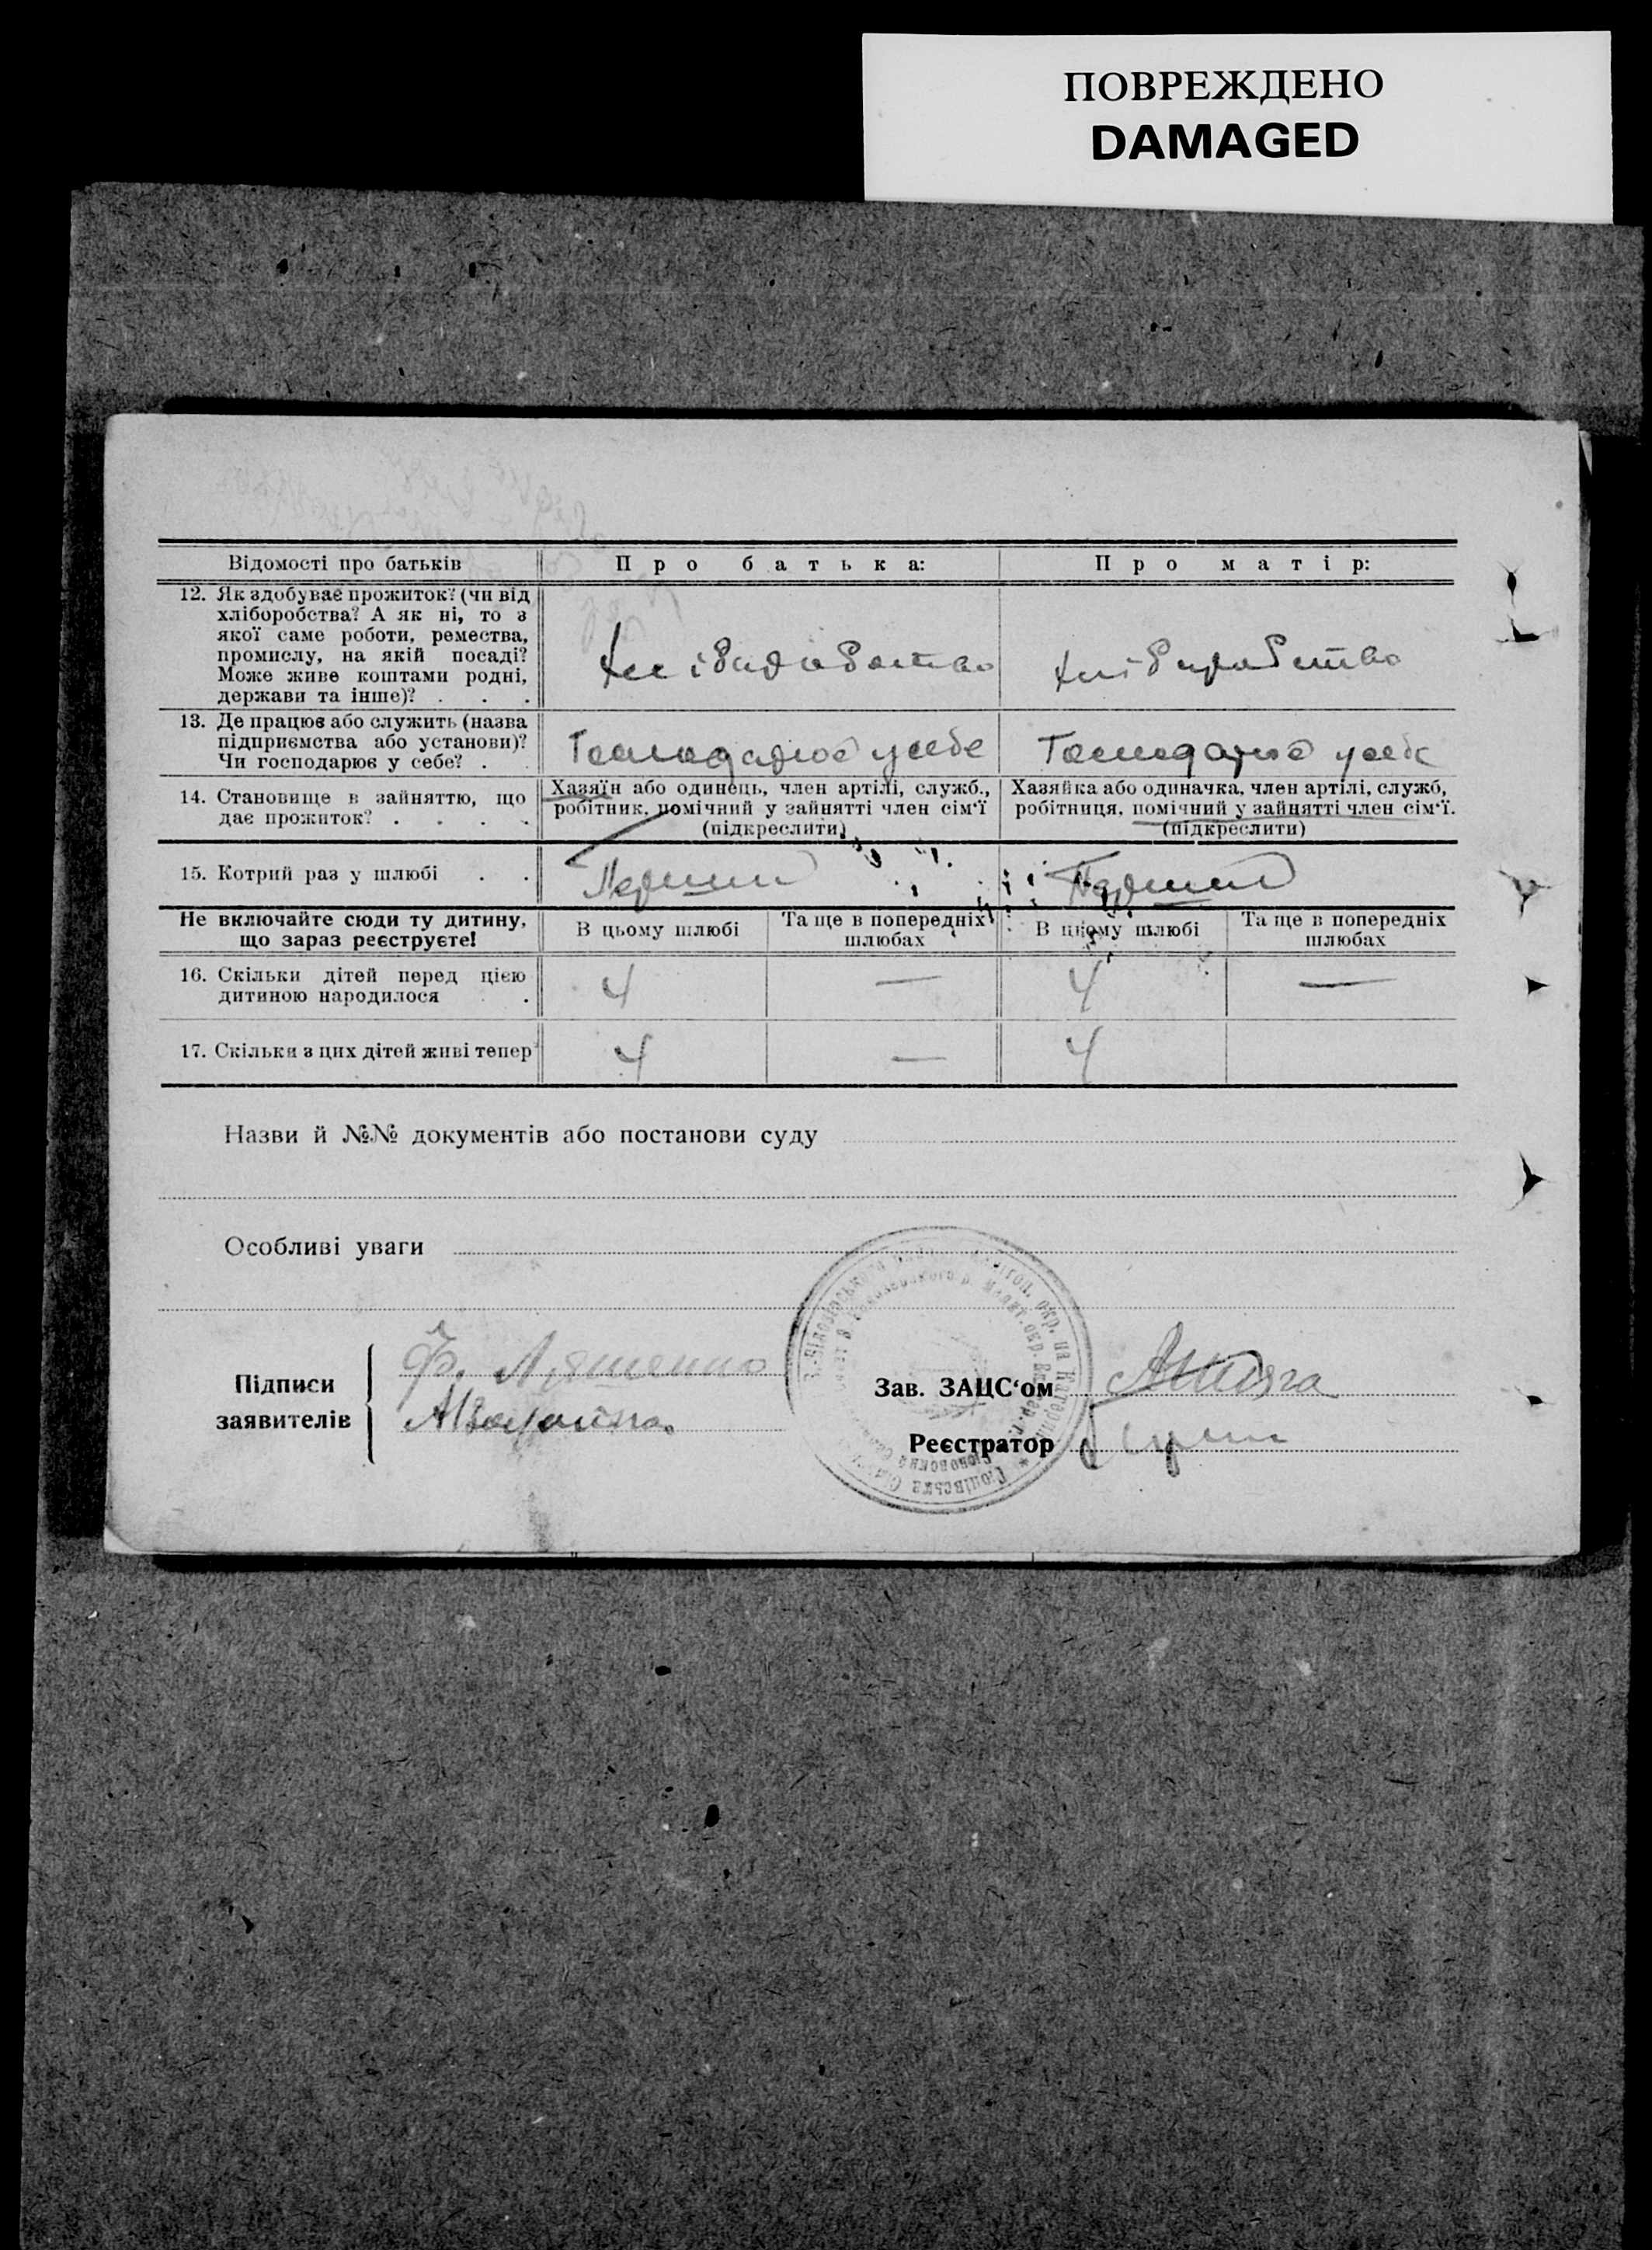 ПОВРЕЖДЕНО
DAMAGED
Відомості про батьків
Про батька:
Про матір:
12. Як здобуває прожиток? (чи від
хліборобства? А як ні, то з
якої саме роботи, ремества,
промислу, на якій посаді?
Може живе коштами родні,
держави та інше)? . . .
Хліборобство
Хліборобство
13. Де працює або служить (назва
підприємства або установи)?
Чи господарює у себе? .
Господарює у себе
Господарює у себе
14. Становище в зайняттю, що
дає прожиток? . . . .
Хазяїн або одинець, член артілі, служб.,
робітник, помічний у зайнятті член сім'ї
(підкреслити)
Хазяйка або одиначка, член артілі, служб,
робітниця, помічний у зайнятті член сім'ї.
(підкреслити)
15. Котрий раз у шлюбі . .
Перший
Перший
Не включайте сюди ту дитину,
що зараз реєструєте!
В цьому шлюбі
Та ще в попередніх
шлюбах
В цьому шлюбі
Та ще в попередніх
шлюбах
16. Скільки дітей перед цією
дитиною народилося .
4 — 4 —
17. Скільки з цих дітей живі тепер
4 — 4
Назви й №№ документів або постанови суду
Особливі уваги
Підписи
заявителів
Ф. Ляшенко
Зав. ЗАЦС'ом
Реєстратор